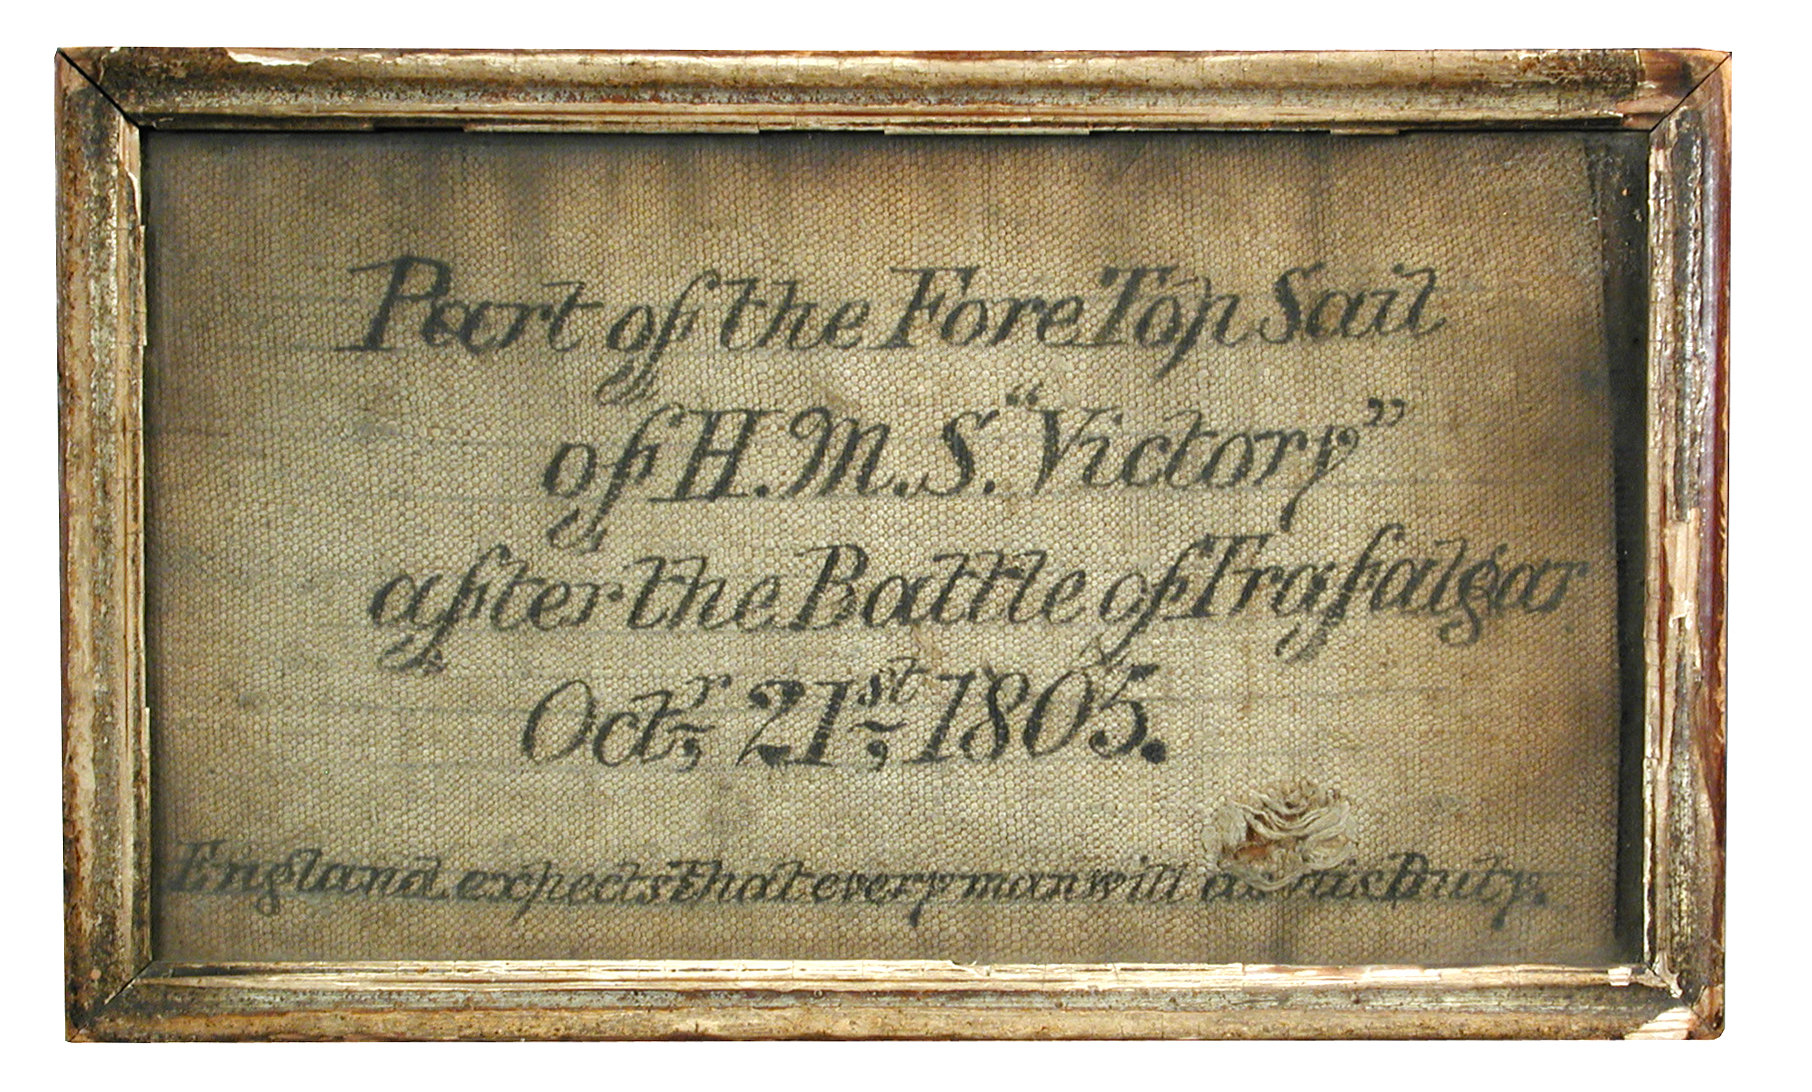 Part of the Fore Top Sail
of H.M.S. “Victory”
after the Battle of Trafalgar
Octr, 21st, 1805.
England expects that every man will do his Duty.